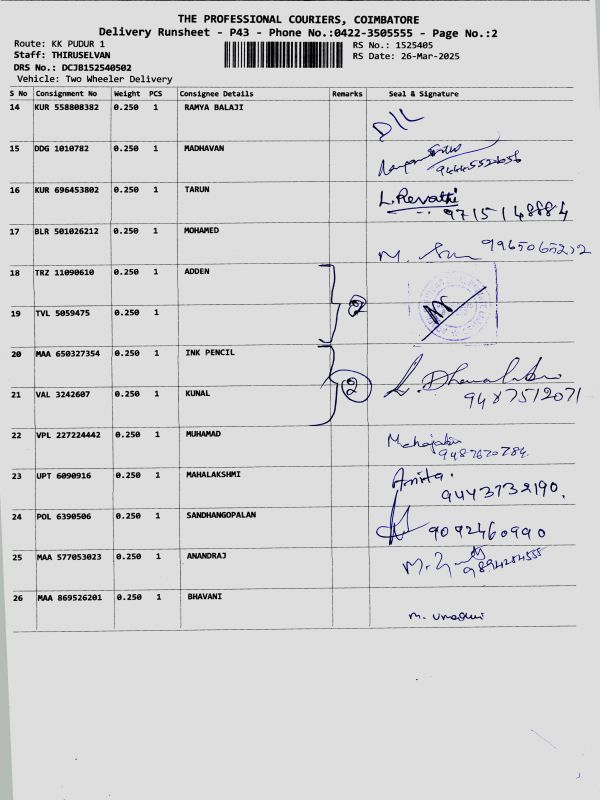 THE PROFESSIONAL COURIERS, COIMBATORE
Delivery Runsheet - P43 - Phone No.:0422-3505555 - Page No.:2
Route: KK PUDUR 1
RS No.: 1525405
Staff: THIRUSELVAN
RS Date: 26-Mar-2025
DRS No.: DCJB152540502
Vehicle: Two Wheeler Delivery
S No Consignment No Weight PCS Consignee Details Remarks Seal & Signature
14 KUR 558808382 0.250 1 RAMYA BALAJI
15 DDG 1010782 0.250 1 MADHAVAN
16 KUR 696453802 0.250 1 TARUN L.Revathi
9715148884
17 BLR 501026212 0.250 1 MOHAMED
18 TRZ 11090610 0.250 1 ADDEN
2
19 TVL 5059475 0.250 1
20 MAA 650327354 0.250 1 INK PENCIL
21 VAL 3242607 0.250 1 KUNAL 2 9487512071
22 VPL 227224442 0.250 1 MUHAMAD
23 UPT 6090916 0.250 1 MAHALAKSHMI Anita.
9443732190.
24 POL 6390506 0.250 1 SANDHANGOPALAN 9092460990
25 MAA 577053023 0.250 1 ANANDRAJ
26 MAA 869526201 0.250 1 BHAVANI